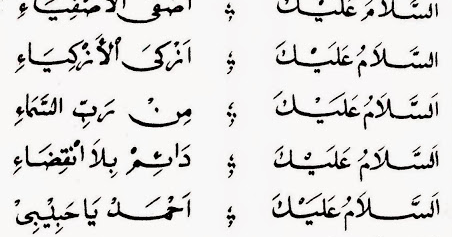 السَّلَامُ عَلَيْكَ ؞ اَصْفَى الْأَصْفِيَاءِ
السَّلَامُ عَلَيْكَ ؞ اَزْكَى الْأَزْكِيَاءِ
اَلسَّلَامُ عَلَيْكَ ؞ مِنْ رَبِّ السَّمَاءِ
اَلسَّلَامُ عَلَيْكَ ؞ دَائِمْ بِلاَ انْقِضَاءِ
اَلسَّلَامُ عَلَيْكَ ؞ اَحْمَدْ يَا حَبِيْبِىْ